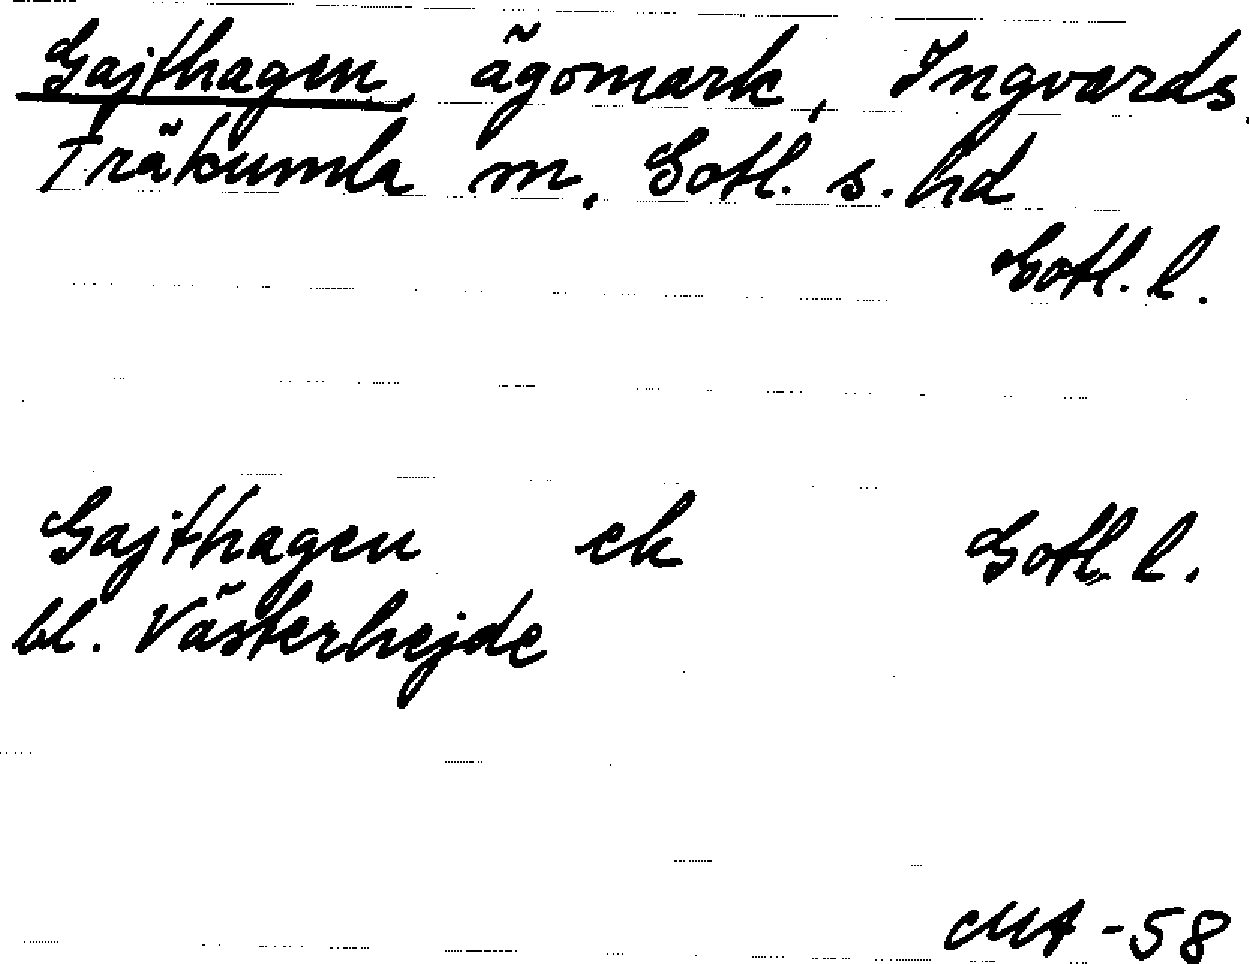 Gajthagen, ägomark, Ingvards,
Träkumla sn, Gotl. s. hd
Gotl. l.
Gajthagen ek Gotl. l.
bl. Västerhejde
MA -58